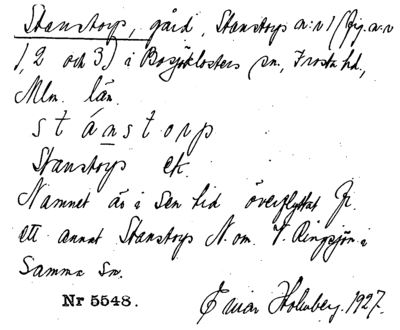 Stanstorp, gård, Stanstorp n:r 1 (jfr n:r
1, 2 och 3) i Bosjöklosters sn, Frosta hd,
Mlm. län.
stánstorp
Stanstorp ek.
Namnet är i sen tid överflyttat fr.
ett annat Stanstorp N. om V. Ringsjön i
samma sn.
Nr 5548. Einar Holmberg. 1927.